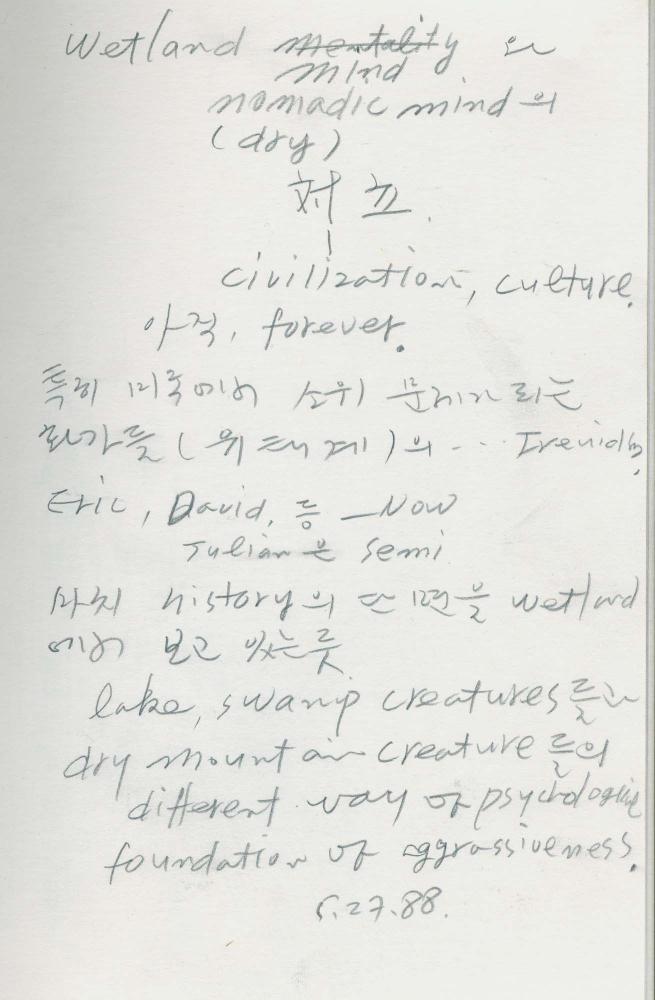 Wetland mentality 와
mind
nomadic mind 의
(dry)
対 조.
civilization, culture.
아직, forever.
특히 미국에서 소위 문제가 되는
화가들 (위 세계)의 ...
Eric, David, 등 — Now
Julian 은 semi
마치 history의 단면을 wetland
에서 보고 있는 듯
lake, swamp creatures 들과
dry mountain creature 들의
different way of psychological
foundation of aggrassiveness.
5.27.88.